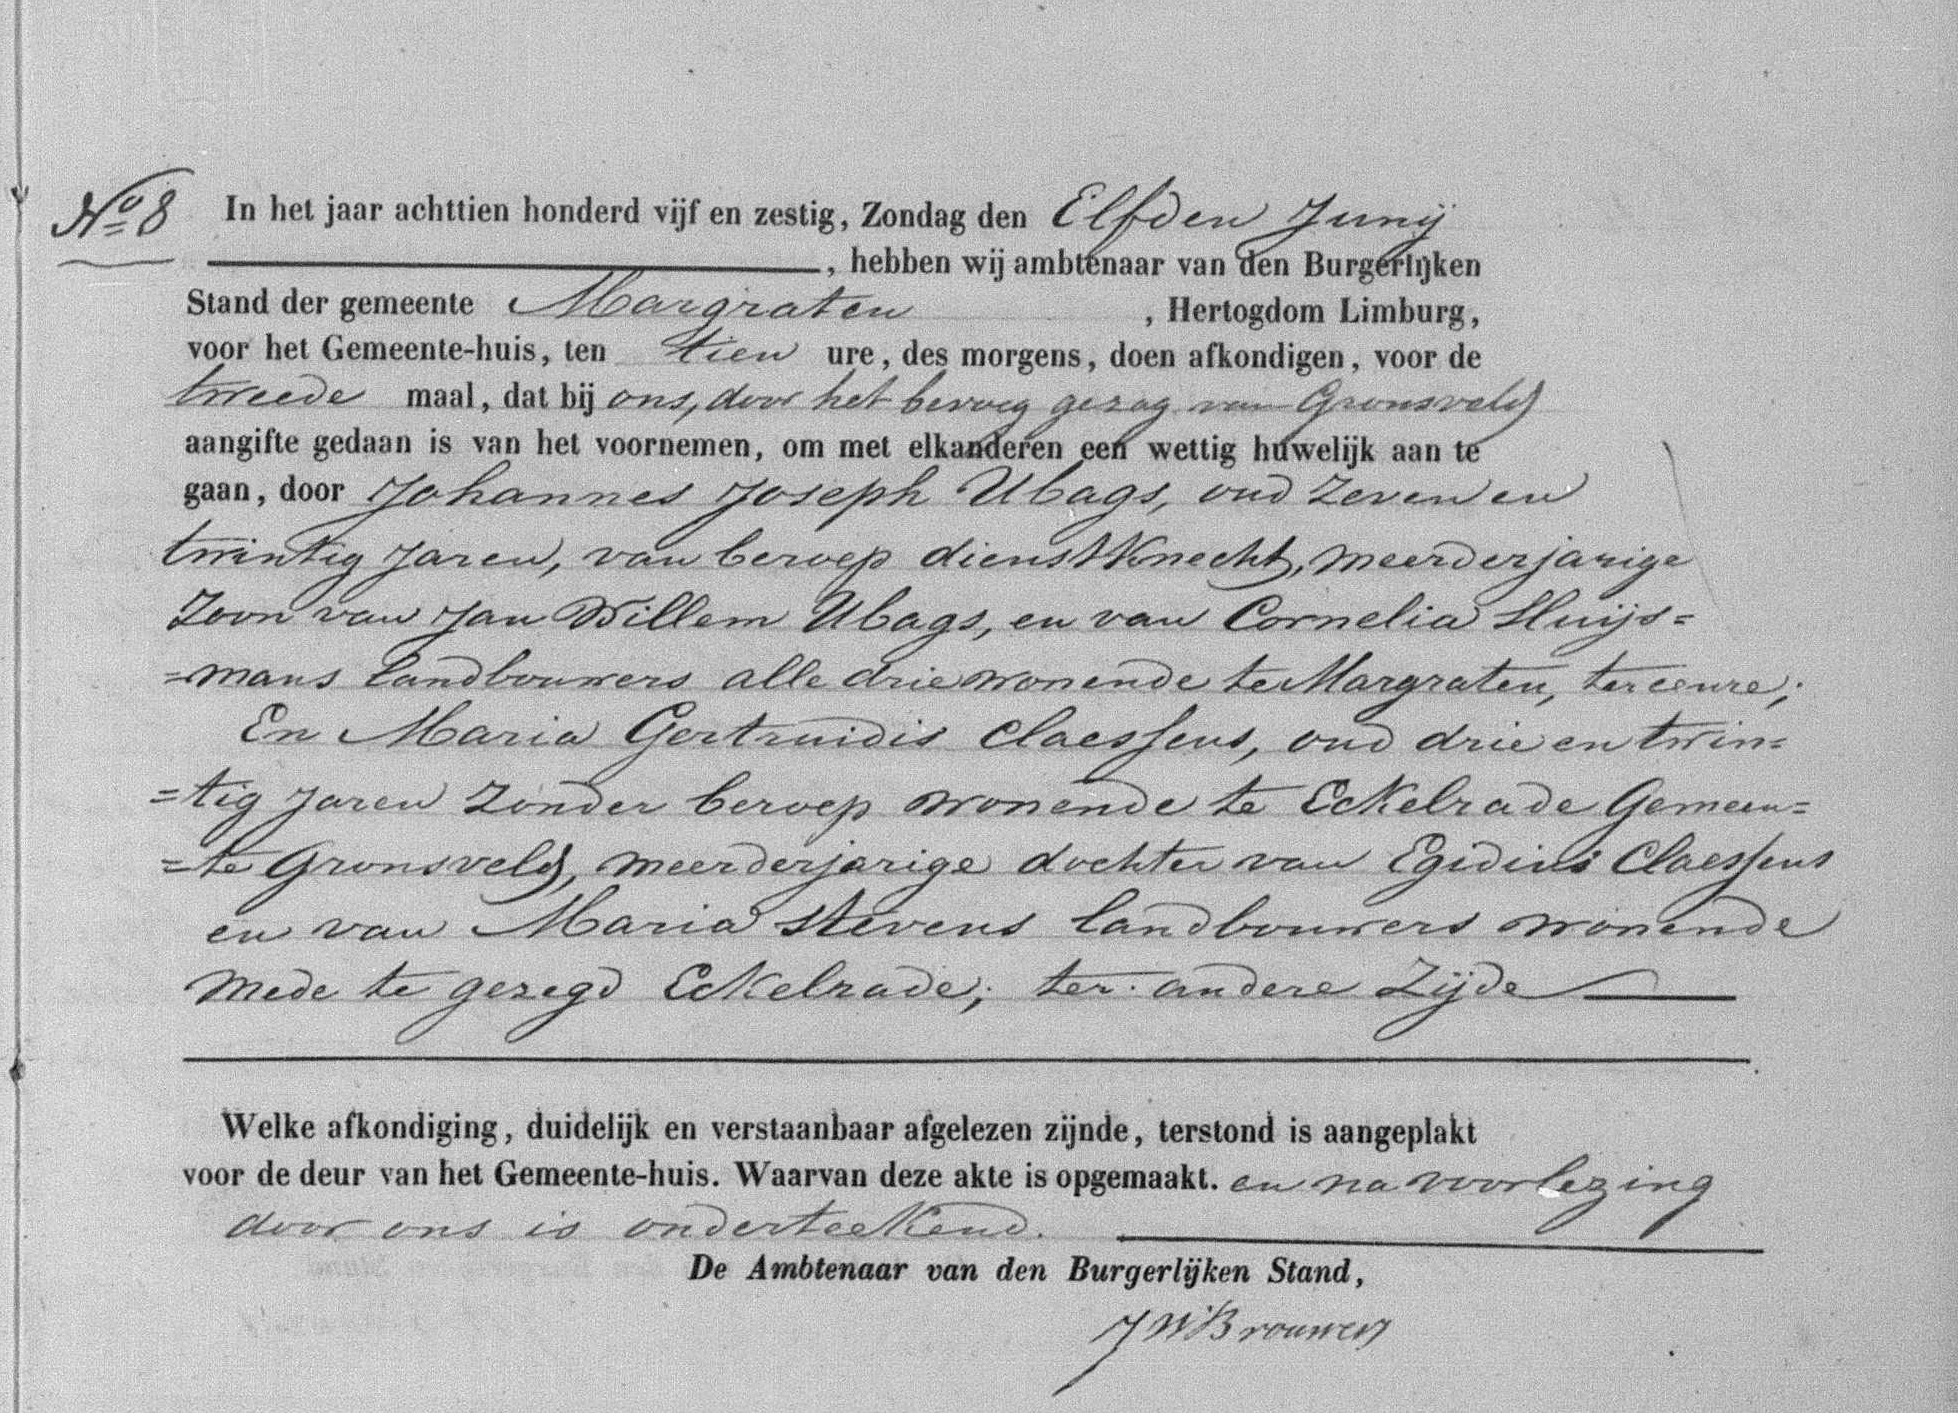 No 8 In het jaar achttien honderd vijf en zestig, Zondag den Elfden Junij
, hebben wij ambtenaar van den Burgerlijken
Stand der gemeente Margraten , Hertogdom Limburg,
voor het Gemeente-huis, ten tien ure, des morgens, doen afkondigen, voor de
tweede maal, dat bij ons, door het bevoeg gezag van Gronsveld
aangifte gedaan is van het voornemen, om met elkanderen een wettig huwelijk aan te
gaan, door Johannes Joseph Ubags, oud Zeven en
twintig Jaren, van beroep dienstknecht, meerderjarige
Zoon van Jan Willem Ubags, en van Cornelia Huijs=
=mans landbouwers alle drie wonende te Margraten, ter eenre;
En Maria Gertruidis Claessens, oud drie en twin=
=tig Jaren Zonder beroep wonende te Eckelrade Gemeen=
=te Gronsveld, meerderjarige dochter van Egidius Claessens
en van Maria Stevens landbouwers wonende
mede te gezegd Eckelrade; ter andere Zijde
Welke afkondiging, duidelijk en verstaanbaar afgelezen zijnde, terstond is aangeplakt
voor de deur van het Gemeente-huis. Waarvan deze akte is opgemaakt. en na voorlezing
door ons is onderteekend.
De Ambtenaar van den Burgerlijken Stand,
J W Brouwers